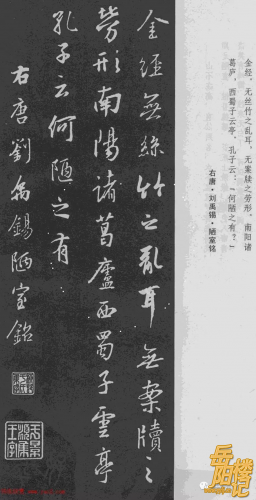 金经。无丝竹之乱耳，无案牍之劳形。南阳诸
葛庐，西蜀子云亭。孔子云：「何陋之有？」
右唐·刘禹锡·陋室铭
金經無絲竹之亂耳無案牘之
勞形南陽諸葛廬西蜀子雲亭
孔子云何陋之有
右唐劉禹錫陋室銘
岳阳楼记